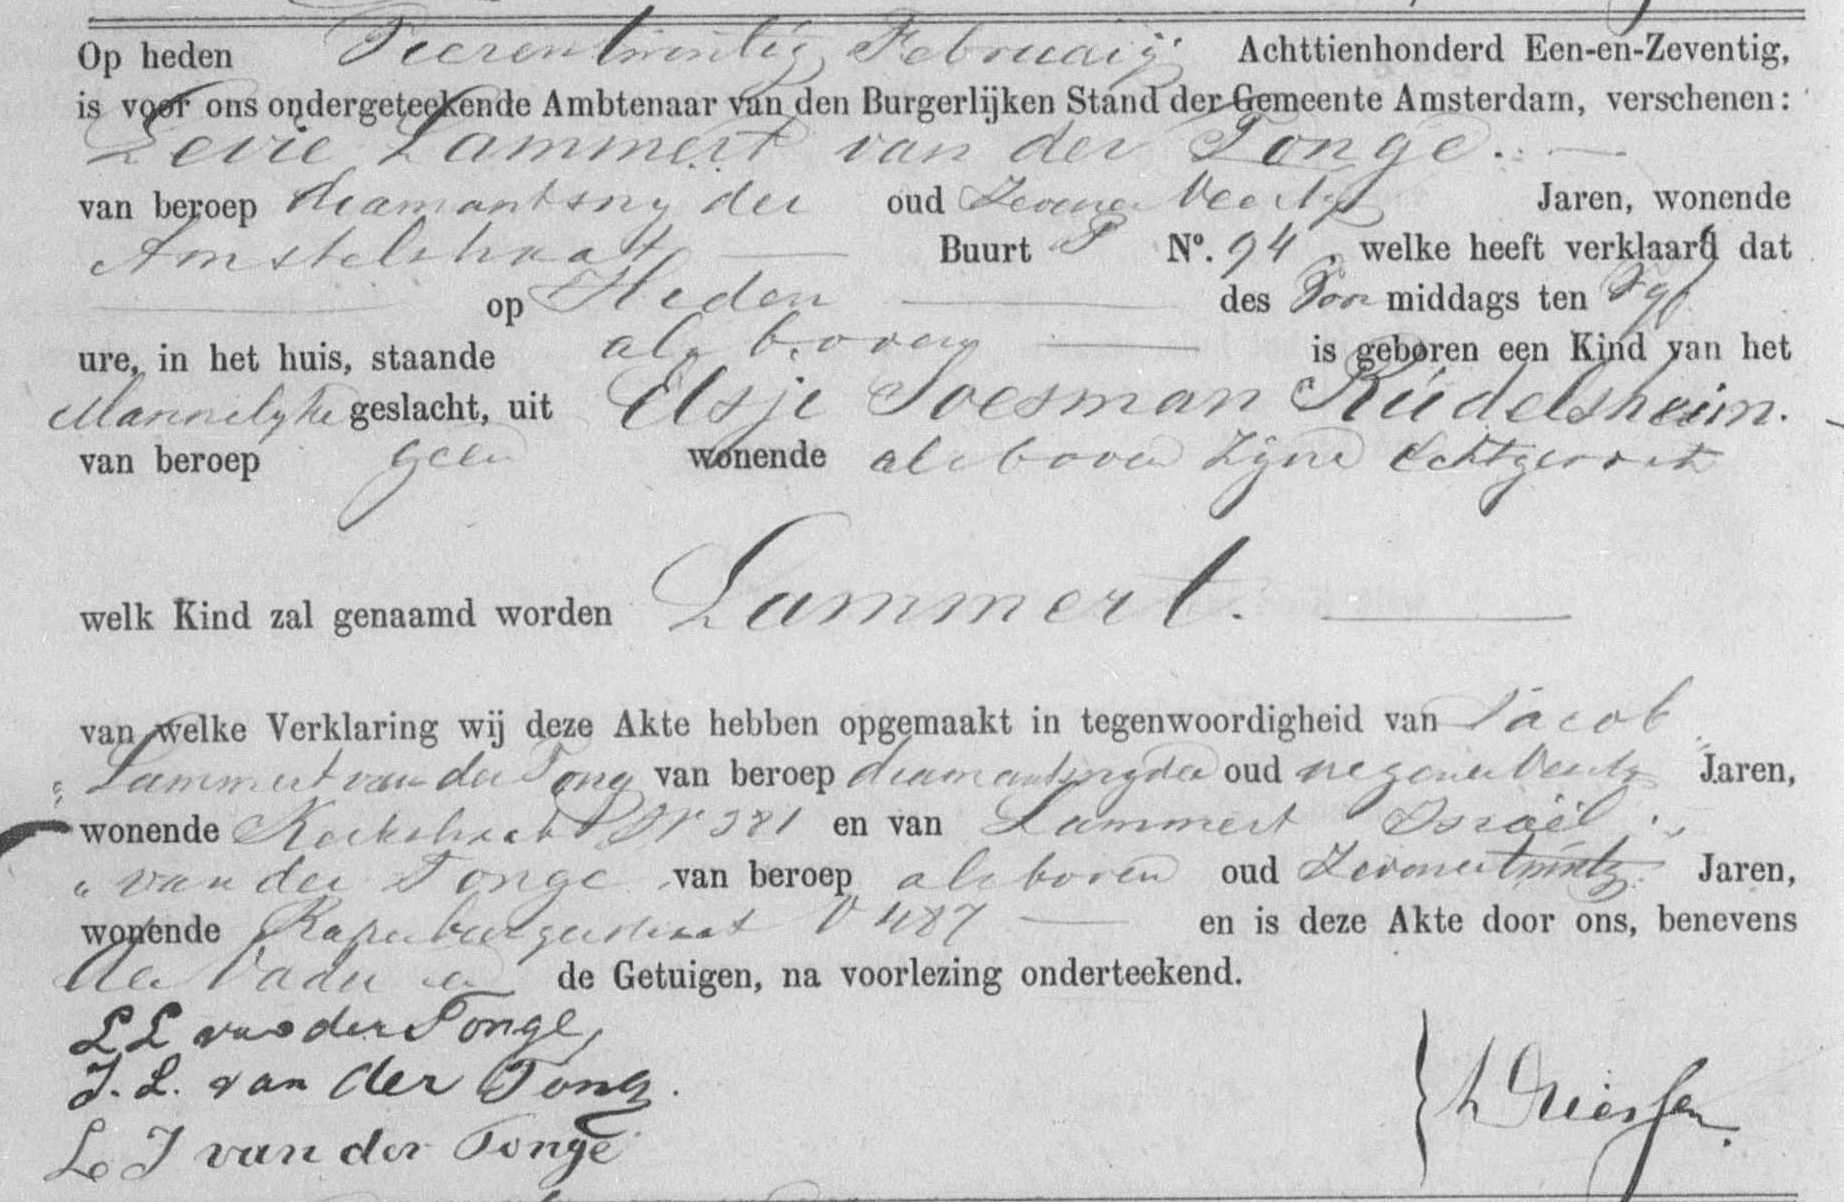 Op heden Vierentwintig Februarij Achttienhonderd Een-en-Zeventig,
is voor ons ondergeteekende Ambtenaar van den Burgerlijken Stand der Gemeente Amsterdam, verschenen:
Levie Lammert van der Tonge.
van beroep diamantsnyder oud Zevenenveertig Jaren, wonende
Amstelstraat Buurt P Nº. 94, welke heeft verklaard dat
op Heden des Voor middags ten Vyf
ure, in het huis, staande als boven is geboren een Kind van het
Mannelyke geslacht, uit Elsje Soesman Rüdelsheim.
van beroep geen wonende als boven zyne Echtgenoot
welk Kind zal genaamd worden Lammert.
van welke Verklaring wij deze Akte hebben opgemaakt in tegenwoordigheid van Jacob
Lammert van der Tong van beroep diamantsnyder oud negenenveertig Jaren,
wonende Kerkstraat Nº 381 en van Lammert Israël
van der Tonge van beroep als boven oud Zevenentwintig Jaren,
wonende Rapenburgerstraat V 487 en is deze Akte door ons, benevens
den Vader en de Getuigen, na voorlezing onderteekend.
L L van der Tonge,
J. L. van der Tong.
L J van der Tonge